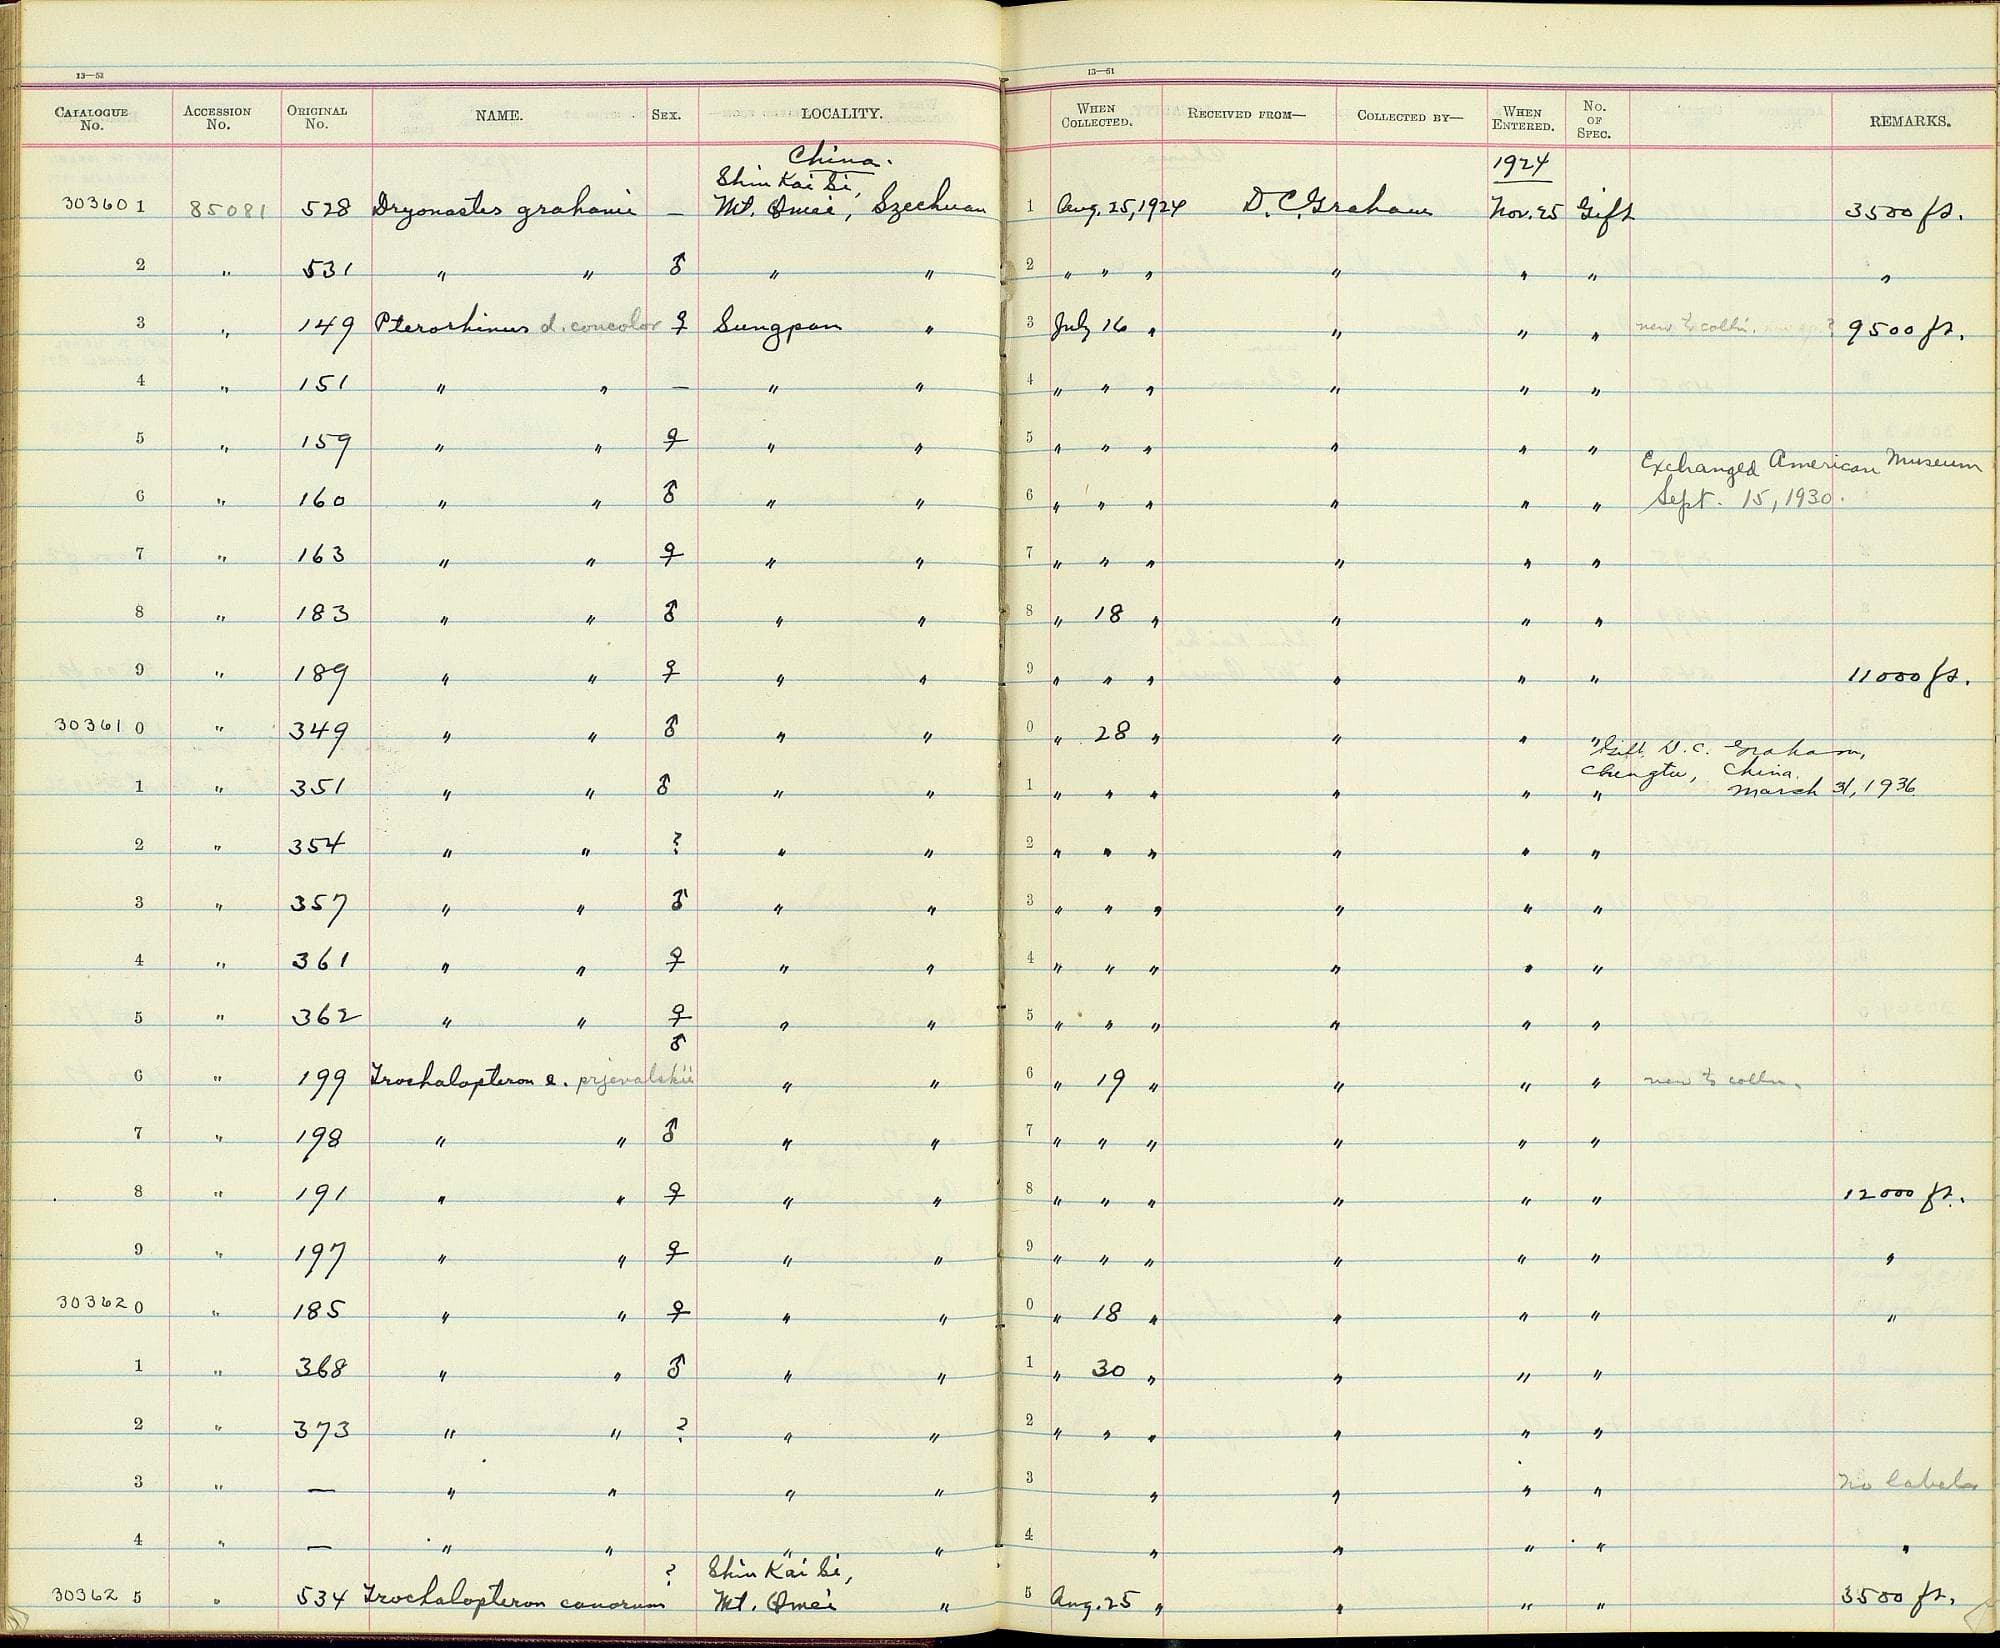 13—52
13—51
CATALOGUE No. ACCESSION No. ORIGINAL No. NAME. SEX. LOCALITY. WHEN COLLECTED. RECEIVED FROM— COLLECTED BY— WHEN ENTERED. No. OF SPEC. REMARKS.
China. 1924
Shin Kai Si,
303601 85081 528 Dryonastes grahami — Mt. Omei, Szechuan 1 Aug. 25, 1924 D. C. Graham Nov. 25 Gift 3500 ft.
2 " 531 " " ♂ " " 2 " " " " " " "
3 " 149 Pterorhinus d. concolor ♀ Sungpan " 3 July 16 " " " " new to colln. 9500 ft.
4 " 151 " " — " " 4 " " " " " "
5 " 159 " " ♀ " " 5 " " " " " "
Exchanged American Museum
6 " 160 " " ♂ " " 6 " " " " " " Sept. 15, 1930.
7 " 163 " " ♀ " " 7 " " " " " "
8 " 183 " " ♂ " " 8 " 18 " " " "
9 " 189 " " ♀ " " 9 " " " " " " 11000 ft.
303610 " 349 " " ♂ " " 0 " 28 " " " "
Gift D. C. Graham,
Chengtu, China.
1 " 351 " " ♂ " " 1 " " " " " " March 31, 1936
2 " 354 " " ? " " 2 " " " " " "
3 " 357 " " ♂ " " 3 " " " " " "
4 " 361 " " ♀ " " 4 " " " " " "
5 " 362 " " ♀ " " 5 " " " " " "
♂
6 " 199 Trochalopteron e. prjevalskii " " 6 " 19 " " " " new to colln.
7 " 198 " " ♂ " " 7 " " " " " "
8 " 191 " " ♀ " " 8 " " " " " " 12000 ft.
9 " 197 " " ♀ " " 9 " " " " " " "
303620 " 185 " " ♀ " " 0 " 18 " " " " "
1 " 368 " " ♂ " " 1 " 30 " " " "
2 " 373 " " ? " " 2 " " " " " "
3 " — " " " " 3 " " " " No labels
4 " — " " " " 4 " " " " "
? Shin Kai Si,
303625 " 534 Trochalopteron canorum Mt. Omei " 5 Aug. 25 " " " " 3500 ft.